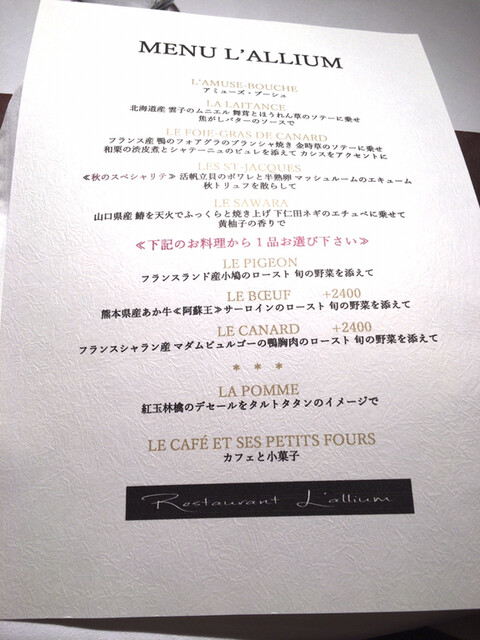 MENU L'ALLIUM
L'AMUSE-BOUCHE
アミューズ・ブーシュ
LA LAITANCE
北海道産 雲子のムニエル 舞茸とほうれん草のソテーに乗せ
焦がしバターのソースで
LE FOIE-GRAS DE CANARD
フランス産 鴨のフォアグラのプランシャ焼き 金時草のソテーに乗せ
和栗の渋皮煮とシャテーニュのピュレを添えて カシスをアクセントに
LES ST-JACQUES
≪秋のスペシャリテ≫ 活帆立貝のポワレと半熟卵 マッシュルームのエキューム
秋トリュフを散らして
LE SAWARA
山口県産 鰆を天火でふっくらと焼き上げ 下仁田ネギのエチュベに乗せて
黄柚子の香りで
≪下記のお料理から１品お選び下さい≫
LE PIGEON
フランスランド産小鳩のロースト 旬の野菜を添えて
LE BŒUF +2400
熊本県産あか牛≪阿蘇王≫サーロインのロースト 旬の野菜を添えて
LE CANARD +2400
フランスシャラン産 マダムビュルゴーの鴨胸肉のロースト 旬の野菜を添えて
* * *
LA POMME
紅玉林檎のデセールをタルトタタンのイメージで
LE CAFÉ ET SES PETITS FOURS
カフェと小菓子
Restaurant L'allium